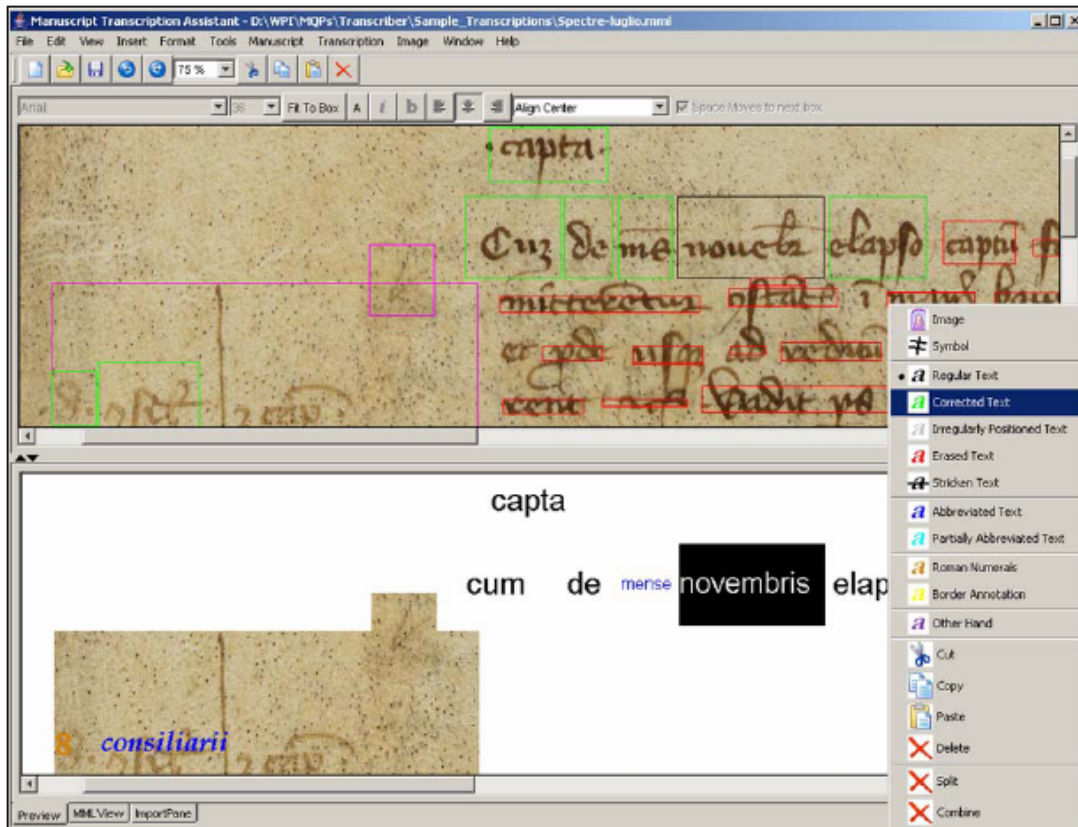 Manuscript Transcription Assistant - D:\WPI\MQPs\Transcriber\Sample_Transcriptions\Spectre-luglio.mml
File Edit View Insert Format Tools Manuscript Transcription Image Window Help
75 %
Arial 36 Fit To Box A i b Align Center Space Moves to next box
capta
de me elapso
et ad
Image
Symbol
Regular Text
Corrected Text
Irregularly Positioned Text
Erased Text
Stricken Text
Abbreviated Text
Partially Abbreviated Text
Roman Numerals
Border Annotation
Other Hand
Cut
Copy
Paste
Delete
Split
Combine
capta
cum de mense novembris elap
8 consiliarii
Preview MMLView ImportPane